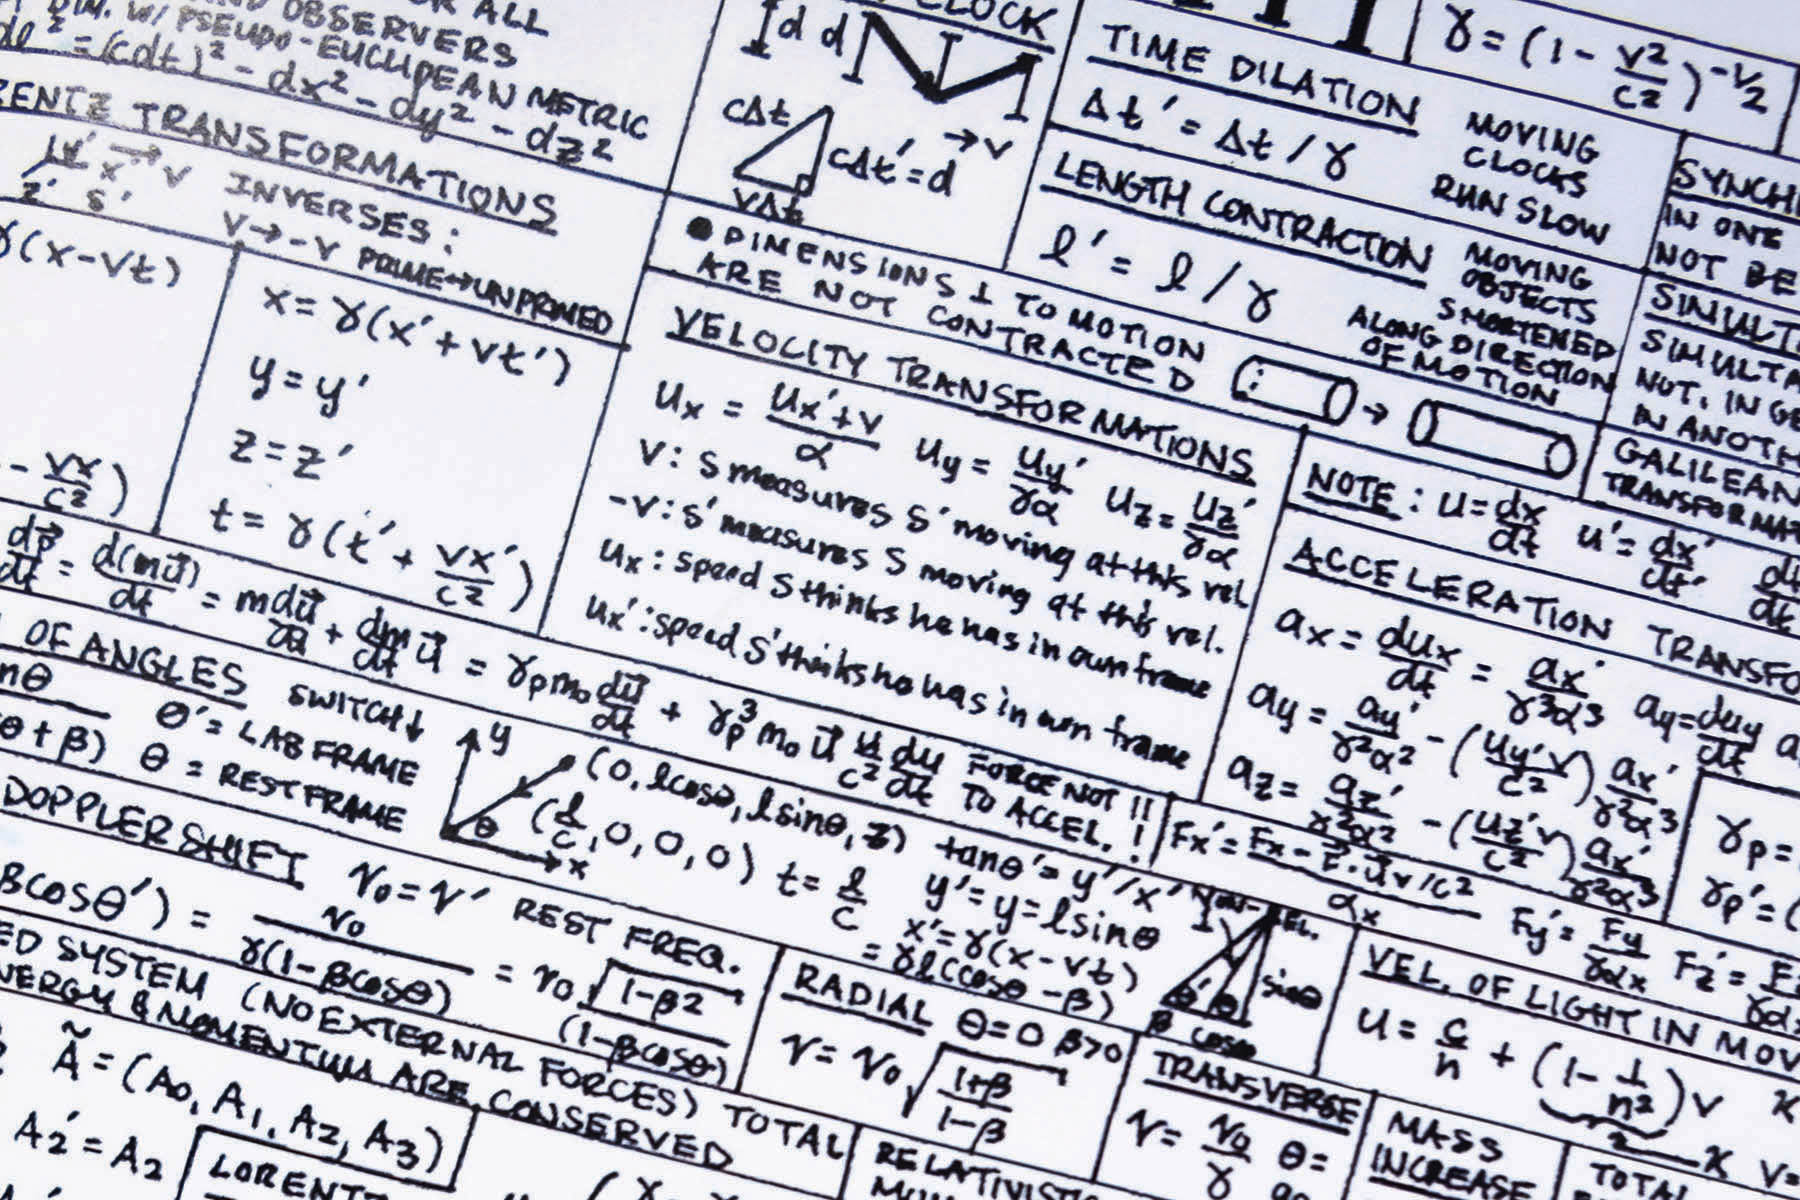 FOR ALL
AND OBSERVERS
DIM. W/ PSEUDO-EUCLIDEAN METRIC
dl² = (cdt)² - dx² - dy² - dz²
ENTZ TRANSFORMATIONS
x' → v
z' S'
INVERSES:
v → -v PRIME↔UNPRIMED
γ(x-vt)
x = γ(x' + vt')
y = y'
z = z'
- vx/c²)
t = γ(t' + vx'/c²)
CLOCK
d d
cΔt
→ v
cΔt' = d
vΔt
• DIMENSIONS ⊥ TO MOTION
ARE NOT CONTRACTED
TIME DILATION
Δt' = Δt / γ
MOVING
CLOCKS
RUN SLOW
γ = (1 - v²/c²)^-1/2
LENGTH CONTRACTION
l' = l / γ
MOVING
OBJECTS
SHORTENED
ALONG DIRECTION
OF MOTION
SYNCH
IN ONE
NOT BE
SIMULT
SIMULTA
NOT, IN GE
IN ANOTH
GALILEAN
TRANSFORMAT
VELOCITY TRANSFORMATIONS
ux = (ux' + v)/α uy = uy'/γα uz = uz'/γα
v: S measures S' moving at this vel
-v: S' measures S moving at this vel.
ux: speed S thinks he has in own frame
ux': speed S' thinks he has in own frame
NOTE: u = dx/dt u' = dx'/dt'
ACCELERATION TRANSFO
ax = dux/dt = ax'/γ³α³ ay = duy/dt
ay = ay'/γ²α² - (uy'v/c²) ax'/γ²α³
az = az'/γ²α² - (uz'v/c²) ax'/γ²α³
γp =
γp' = (
dp/dt = d(mu)/dt = m du/dt + dm/dt u = γp m₀ du/dt + γp³ m₀ u u/c² du/dt FORCE NOT !!
TO ACCEL. !
OF ANGLES SWITCH↓
θ' = LAB FRAME
θ + β) θ = REST FRAME
y
θ
x
(0, l cosθ, l sinθ, z)
(l/c, 0, 0, 0) t = l/c
tanθ' = y'/x'
y' = y = l sinθ
x' = γ(x - vt)
= γl(cosθ - β)
Fx' = (Fx - F·u v/c²)/αx
Fy' = Fy/γαx Fz' =
NON-REL.
θ' θ sinθ
β cosθ
DOPPLER SHIFT ν₀ = ν' REST FREQ.
βcosθ') = ν₀/γ(1-βcosθ) = ν₀ √(1-β²)/(1-βcosθ)
RADIAL θ=0 β>0
ν = ν₀ √((1+β)/(1-β))
TRANSVERSE
ν = ν₀/γ θ =
VEL. OF LIGHT IN MOV
u = c/n + (1 - 1/n²)v
MASS
INCREASE
TOTAL
ED SYSTEM (NO EXTERNAL FORCES) TOTAL
NERGY & MOMENTUM ARE CONSERVED
Ã = (A₀, A₁, A₂, A₃)
A₂' = A₂
LORENT
RELATIVISTIC